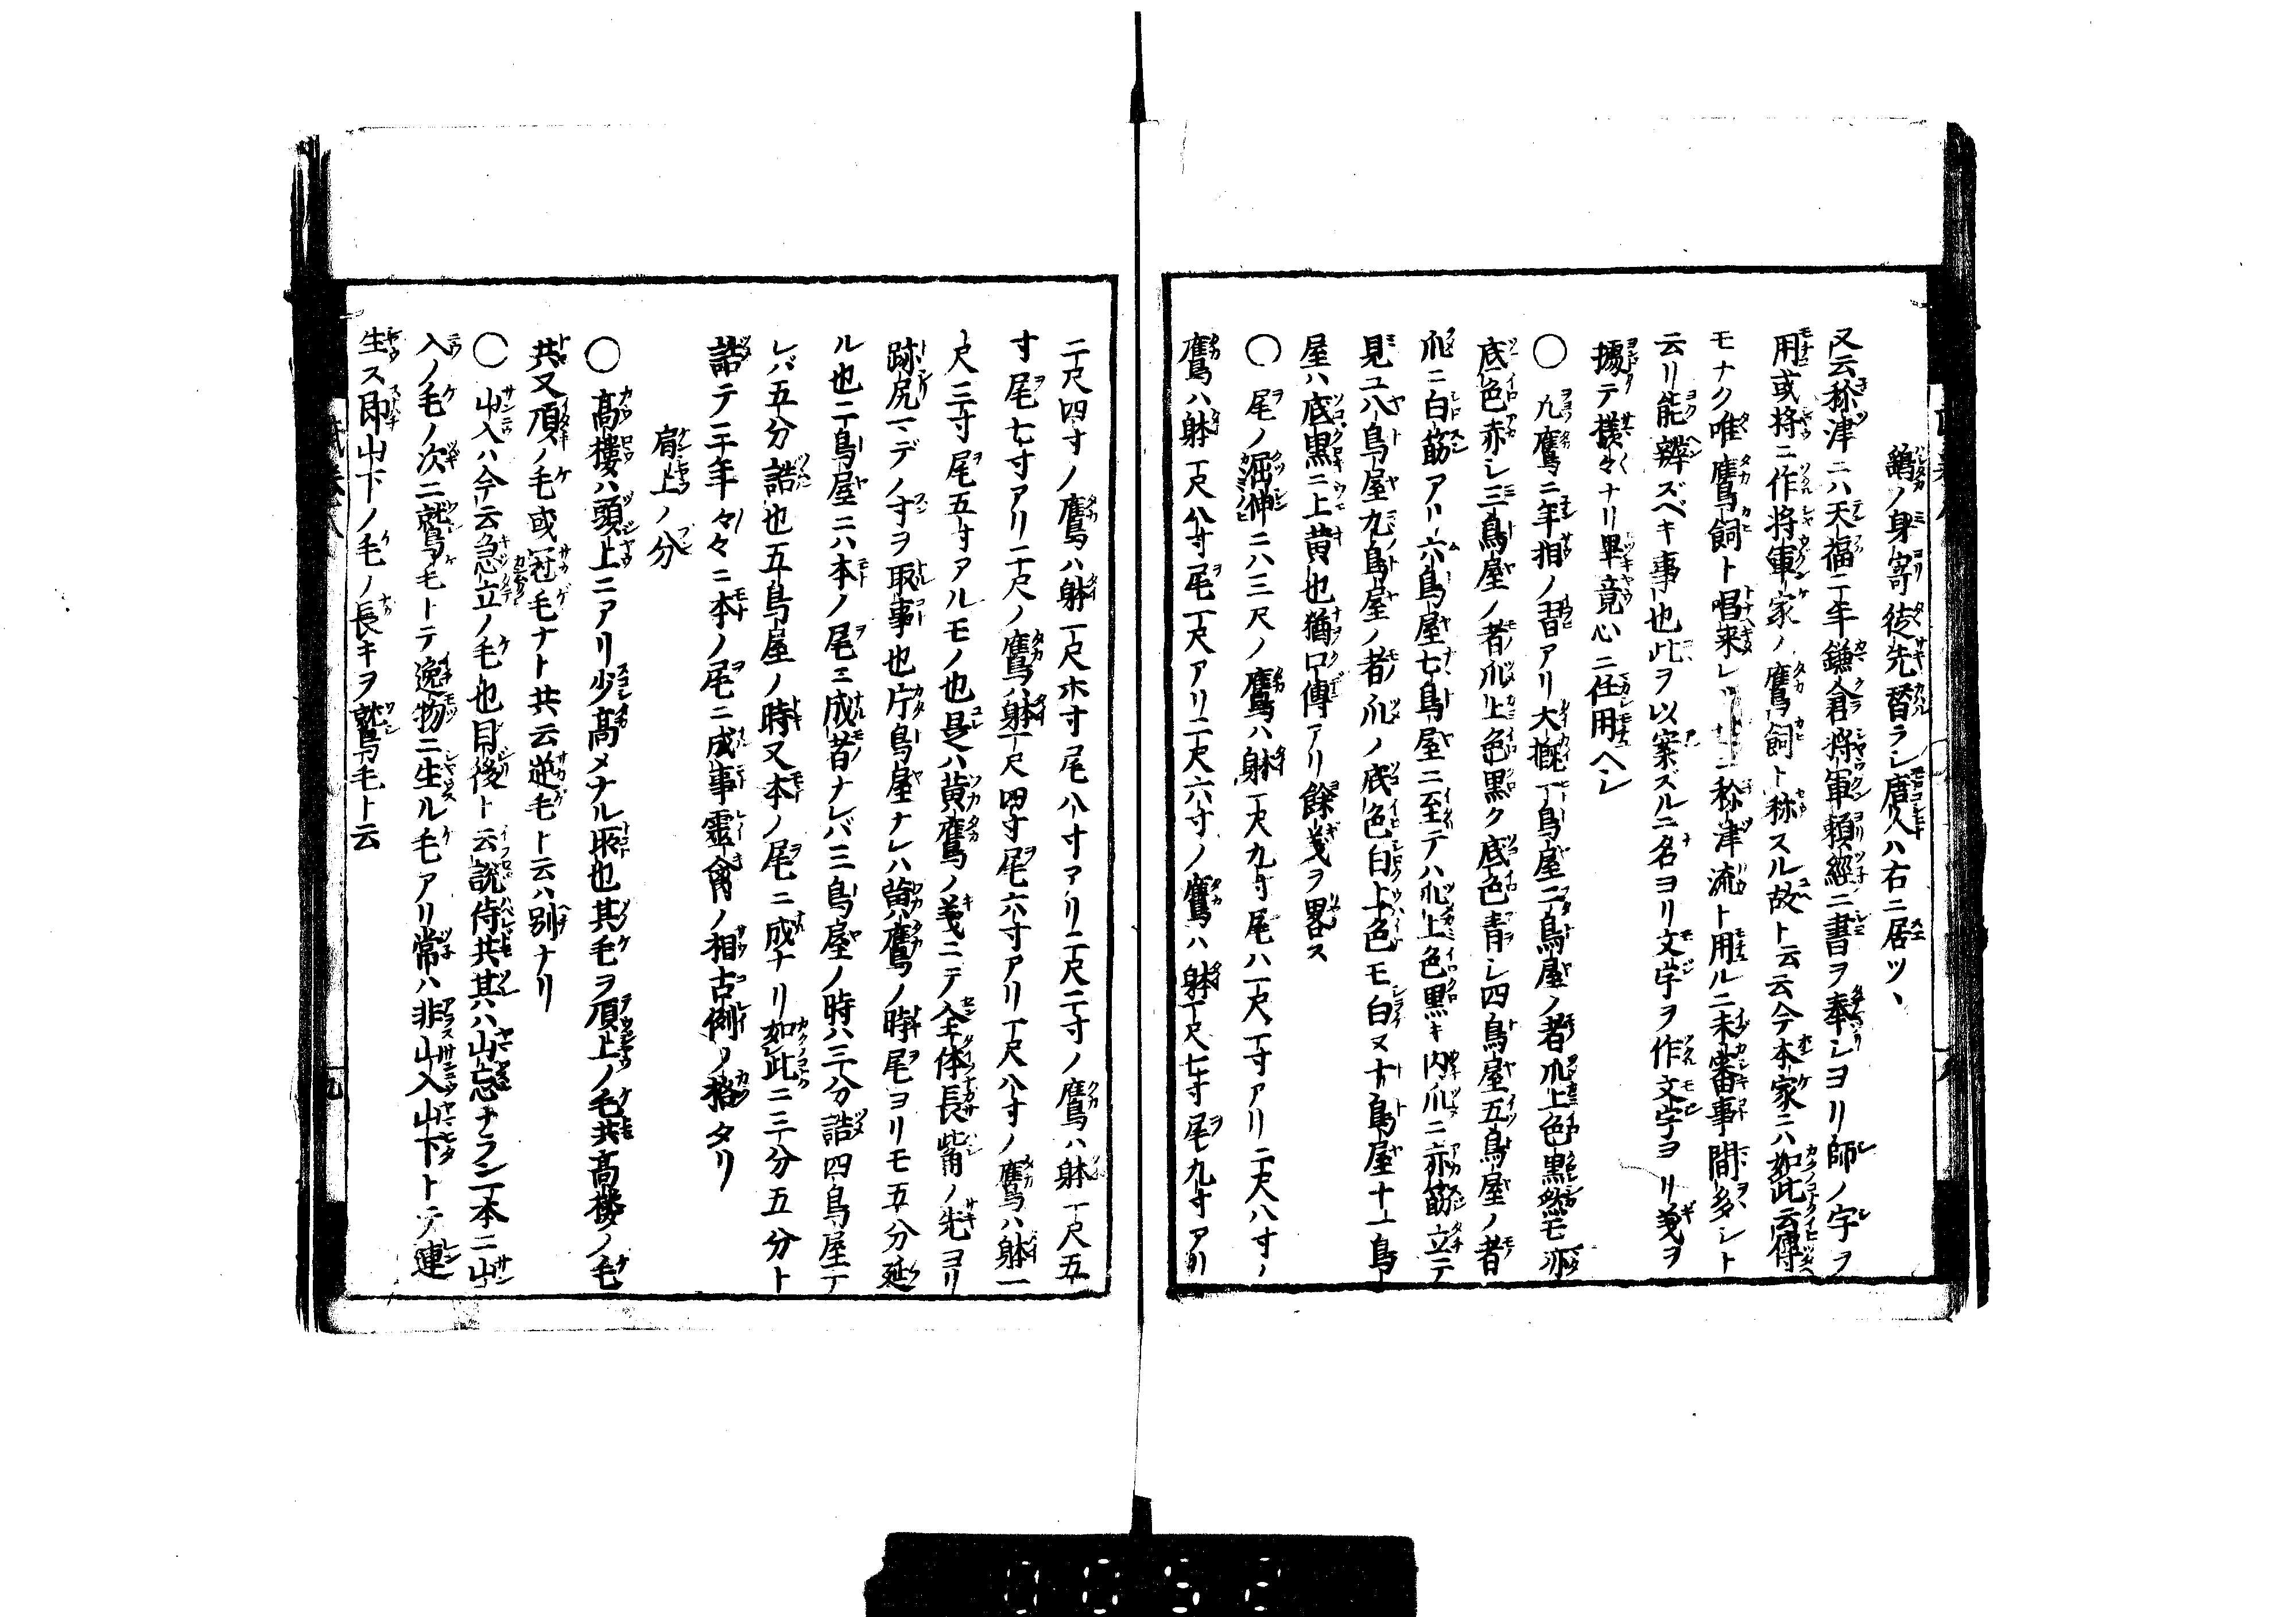 鷂ノ身寄徒先替ラシ唐人ハ右ニ居ツヽ
又云称津ニハ天福二年鎌倉将軍頼經ニ書ヲ奉シヨリ師ノ字ヲ
用或将ニ作将軍家ノ鷹飼ト称スル故ト云云今本家ニハ如此云傳
モナク唯鷹飼ト唱来レリ 称津流ト用ルニ未審事間多シト
云リ能辨ズベキ事也此ヲ以案ズルニ名ヨリ文字ヲ作文字ヨリ義ヲ
據テ様々ナリ畢竟心ニ任用ヘシ
〇九鷹ニ年相ノ習アリ大概一鳥屋二鳥屋ノ者爪上色黒然モ亦
底色赤シ三鳥屋ノ者爪上色黒ク底色青シ四鳥屋五鳥屋ノ者
爪ニ白筋アリ六鳥屋七鳥屋ニ至テハ爪上色黒キ内爪ニ赤筋立テ
見ユ八鳥屋九鳥屋ノ者爪ノ底色白上色モ白又十鳥屋十一鳥
屋ハ底黒ニ上黄也猶口傳アリ餘義ヲ畧ス
〇尾ノ屈伸ニハ三尺ノ鷹ハ躰一尺九寸尾ハ一尺一寸アリ二尺八寸ノ
鷹ハ躰一尺八寸尾一尺アリ二尺六寸ノ鷹ハ躰一尺七寸尾九寸アリ
二尺四寸ノ鷹ハ躰一尺六寸尾八寸アリ二尺二寸ノ鷹ハ躰一尺五
寸尾七寸アリ二尺ノ鷹ハ躰一尺四寸尾六寸アリ一尺八寸ノ鷹ハ躰一
尺三寸尾五寸アルモノ也是ハ黄鷹ノ義ニテ全体長觜ノ先ヨリ
跡尻マデノ寸ヲ取事也片鳥屋ナレハ黄鷹ノ時尾ヨリモ五分延
ル也二鳥屋ニハ本ノ尾ニ成者ナレバ三鳥屋ノ時ハ三分詰四鳥屋テ
レバ五分詰也五鳥屋ノ時又本ノ尾ニ成ナリ如此ニ三分五分ト
詰テ三年々々ニ本ノ尾ニ成事靈禽ノ相古例ノ格タリ
肩上ノ分
〇高樓ハ頭上ニアリ少高メナル取也其毛ヲ頂上ノ毛共高樓ノ毛
共又頂ノ毛或冠毛ナト共云逆毛ト云ハ別ナリ
〇山入ハ今云急立ノ毛也目後ト云説侍共其ハ山忘ナラン一本ニ山
入ノ毛ノ次ニ鷲毛トテ逸物ニ生ル毛アリ常ハ非山入山下トテ連
生ス即山下ノ毛ノ長キヲ鷲毛ト云
九